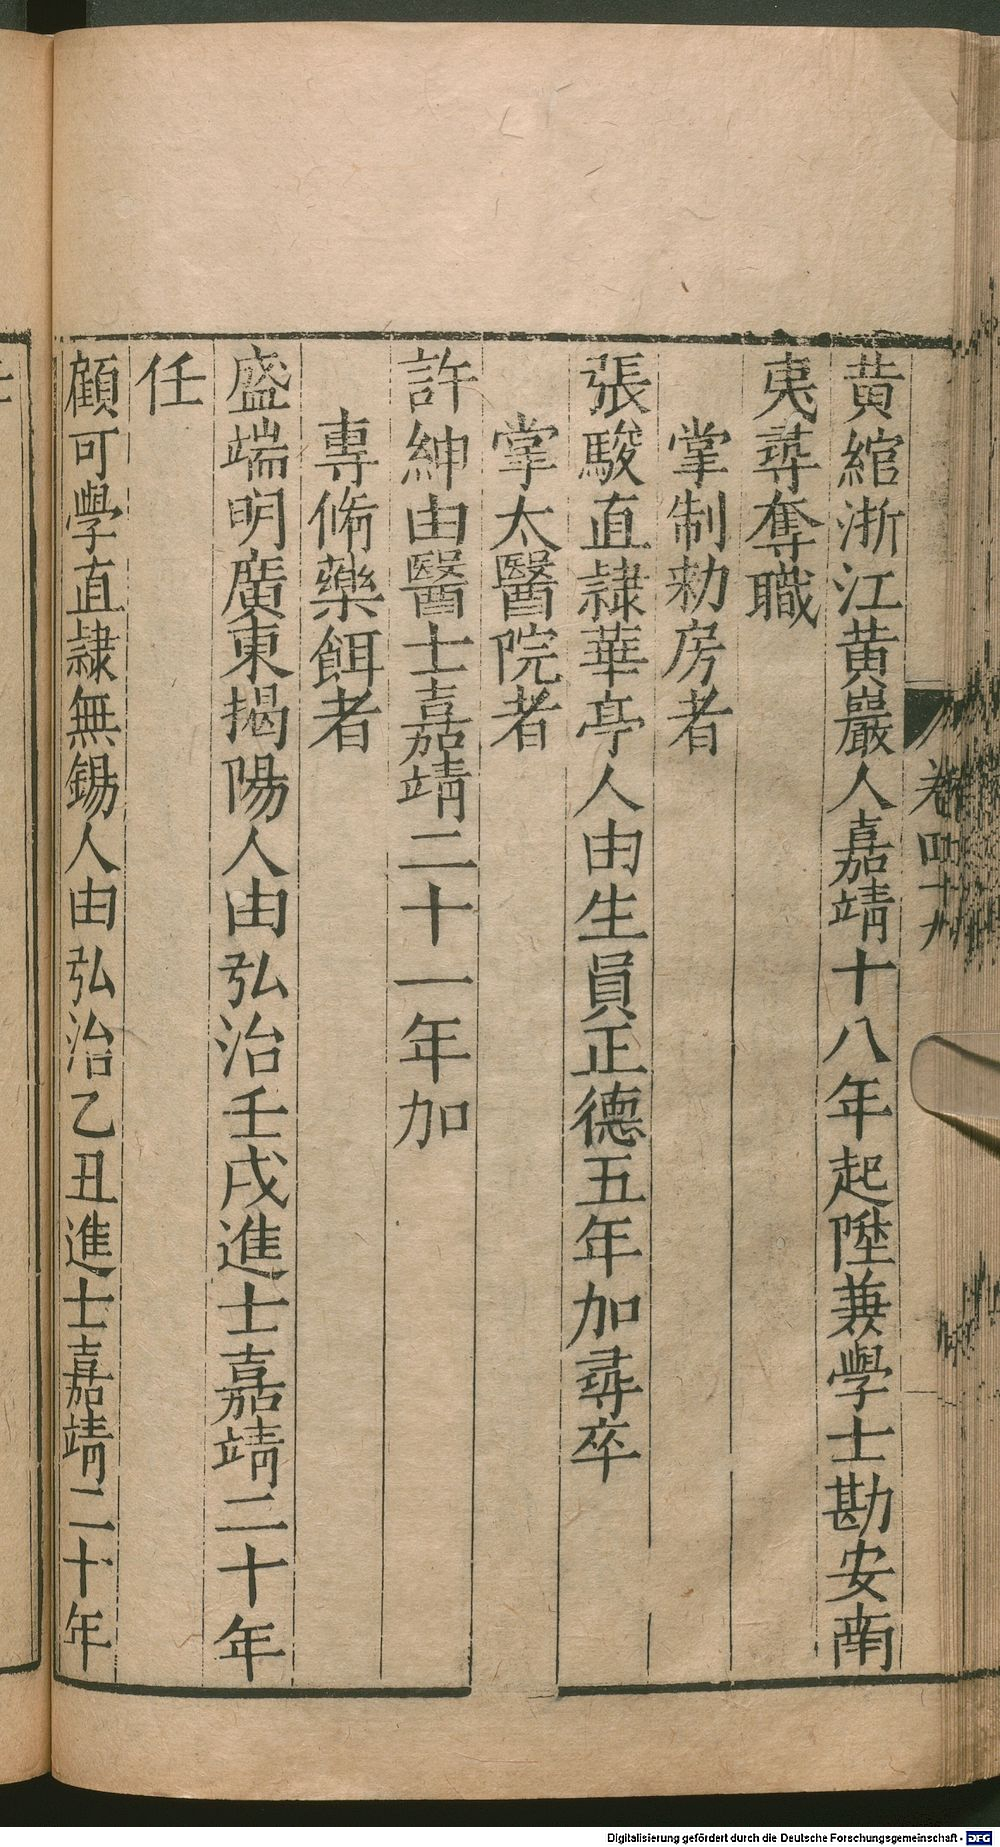 卷四十九
黄綰浙江黄巖人嘉靖十八年起陞兼學士勘安南
夷尋奪職
掌制勅房者
張駿直隷華亭人由生員正德五年加尋卒
掌太醫院者
許紳由醫士嘉靖二十一年加
專脩藥餌者
盛端明廣東揭陽人由弘治壬戌進士嘉靖二十年
任
顧可學直隷無錫人由弘治乙丑進士嘉靖二十年
Digitalisierung gefördert durch die Deutsche Forschungsgemeinschaft - DFG